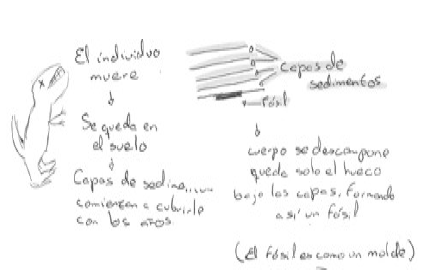 El individuo
muere
Se queda en
el suelo
Capas de
comienzan a cubrirlo
con los años
capas de
sedimentos
fósil
cuerpo se descompone
queda solo el hueco
bajo las capas, formando
así un fósil
(El fósil es como un molde)